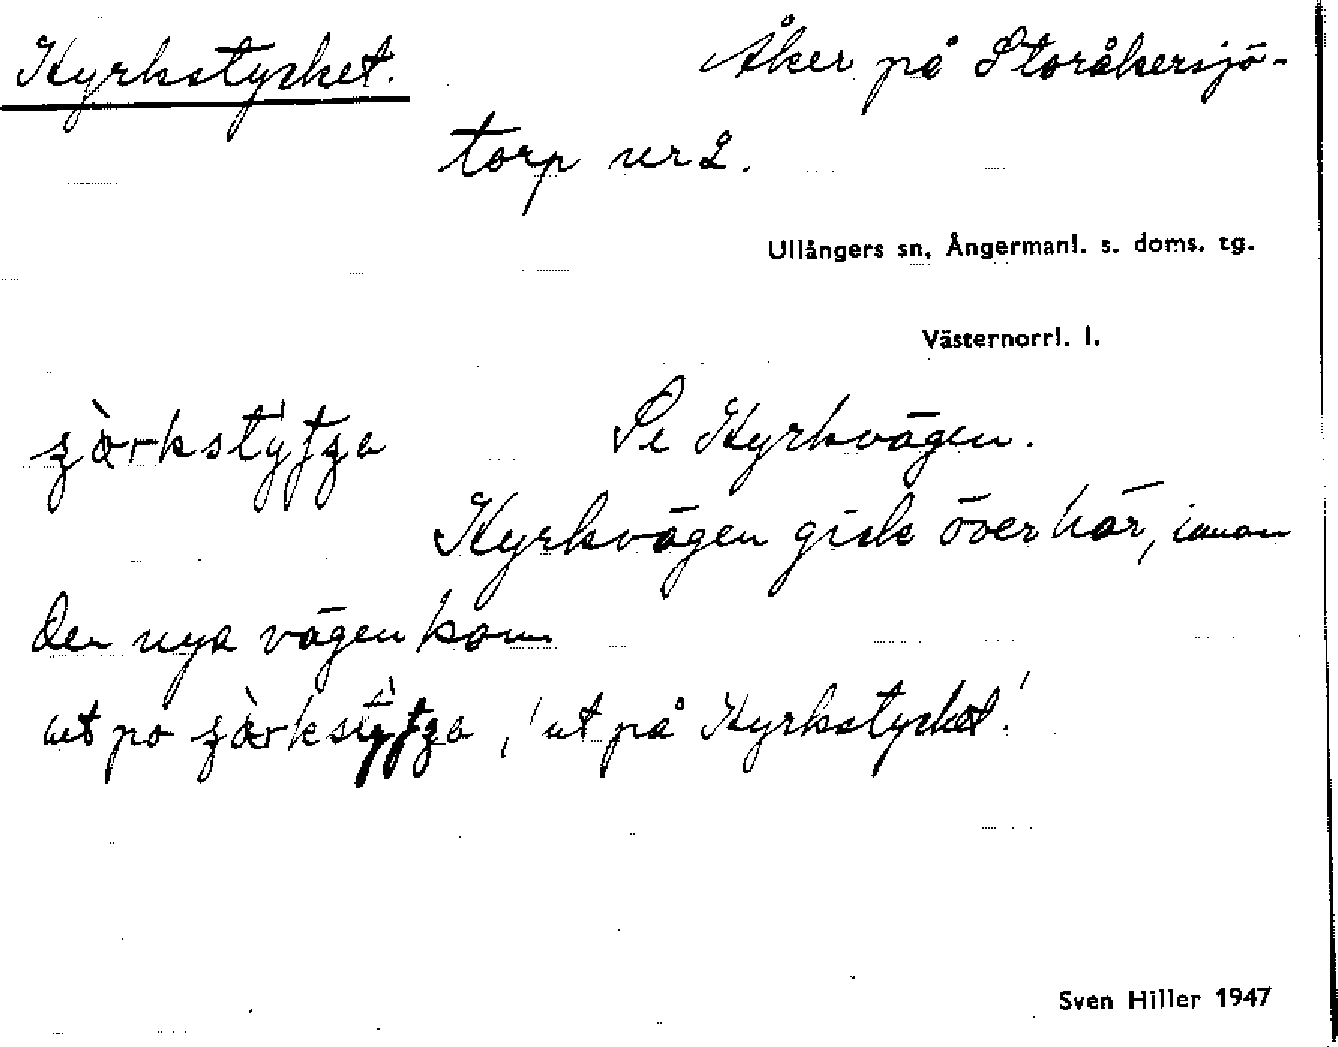 Kyrkstycket. Åker på Storåkersjö-
torp nr 2.
Ullångers sn, Ångermanl. s. doms. tg.
Västernorrl. l.
Se Kyrkvägen.
Kyrkvägen gick över här, innan
den nya vägen kom
ut på Kyrkstycket.'
Sven Hiller 1947